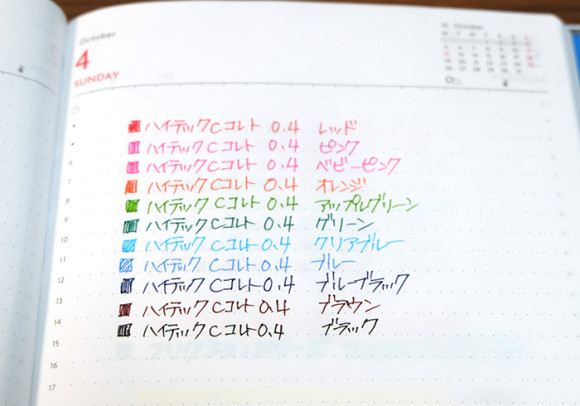 October
4
SUNDAY
October
ハイテックCコレト 0.4 レッド
ハイテックCコレト 0.4 ピンク
ハイテックCコレト 0.4 ベビーピンク
ハイテックCコレト 0.4 オレンジ
ハイテックCコレト 0.4 アップルグリーン
ハイテックCコレト 0.4 グリーン
ハイテックCコレト 0.4 クリアブルー
ハイテックCコレト 0.4 ブルー
ハイテックCコレト 0.4 ブルーブラック
ハイテックCコレト 0.4 ブラウン
ハイテックCコレト 0.4 ブラック
8
9
10
11
12
13
14
15
17